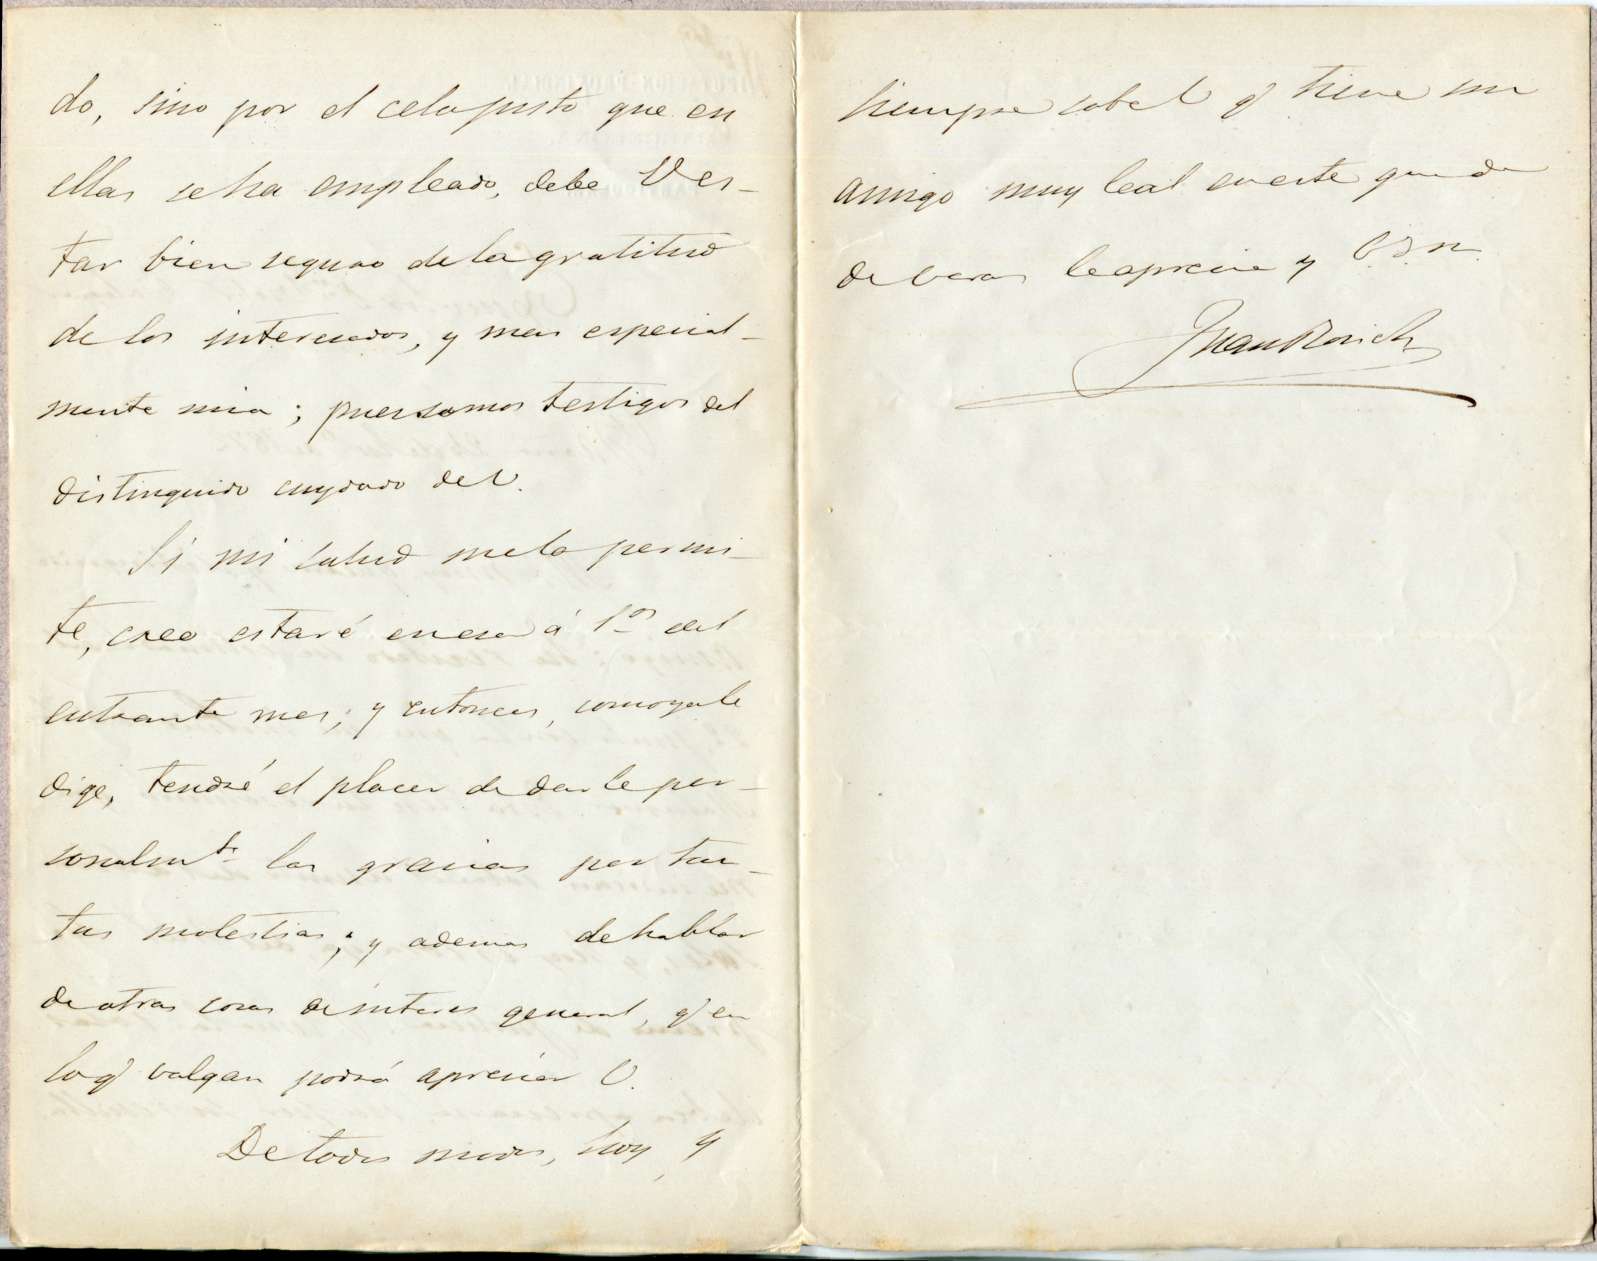 do, sino por el celo justo que en
ellas se ha empleado, debe V es-
tar bien seguro de la gratitud
de los interesados, y mas especial-
mente mia; pues somos testigos del
distinguido cuydado de V.
Si mi salud me lo permi-
te, creo estaré en esa á 1os del
entrante mes; y entonces, como ya le
dige, tendré el placer de darle per-
sonalmte las gracias por tan-
tas molestias; y ademas de hablar
de otras cosas de interes general, q en
lo q valgan podrá apreciar V.
De todos modos, hoy y
siempre sabe V q tiene un
amigo muy leal en este que de
de veras le aprecia y B. S. M.
Juan Rosich